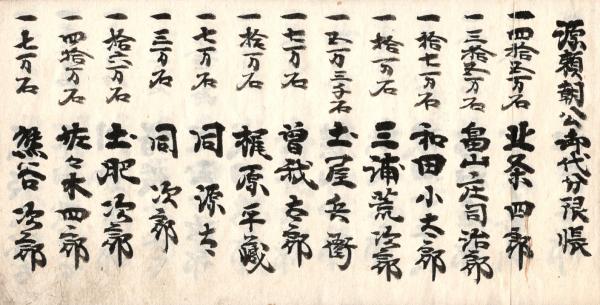 源頼朝公御代分限帳
一四拾五万石 北条四郎
一三拾五万石 畠山庄司治郎
一拾七万石 和田小太郎
一拾万石 三浦荒次郎
一五万三千石 土屋兵衛
一七万石 曽我太郎
一拾万石 梶原平蔵
一七万石 同源太
一三万石 同次郎
一拾二万石 土肥次郎
一四拾万石 佐々木四郎
一七万石 熊谷次郎